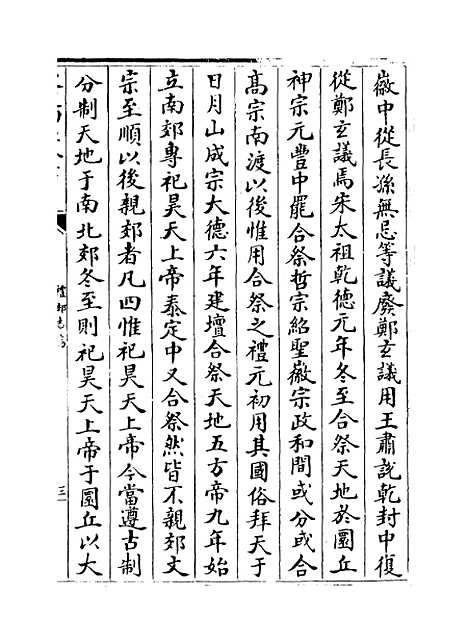 徽中從長孫無忌等議廢鄭玄議用王肅說乾封中復
從鄭玄議焉宋太祖乾德元年冬至合祭天地於圜丘
神宗元豐中罷合祭哲宗紹聖徽宗政和間或分或合
高宗南渡以後惟用合祭之禮元初用其國俗拜天于
日月山成宗大德六年建壇合祭天地五方帝九年始
立南郊專祀昊天上帝泰定中又合祭然皆不親郊文
宗至順以後親郊者凡四惟祀昊天上帝今當遵古制
分制天地于南北郊冬至則祀昊天上帝于圜丘以大
三